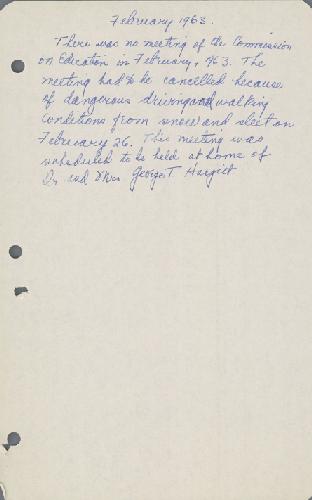 February 1963.
There was no meeting of the Commission
on Education in February, 1963. The
meeting had to be cancelled because
of dangerous driving and walking
conditions from snow and sleet on
February 26. This meeting was
scheduled to be held at home of
Dr. and Mrs George T Hargitt